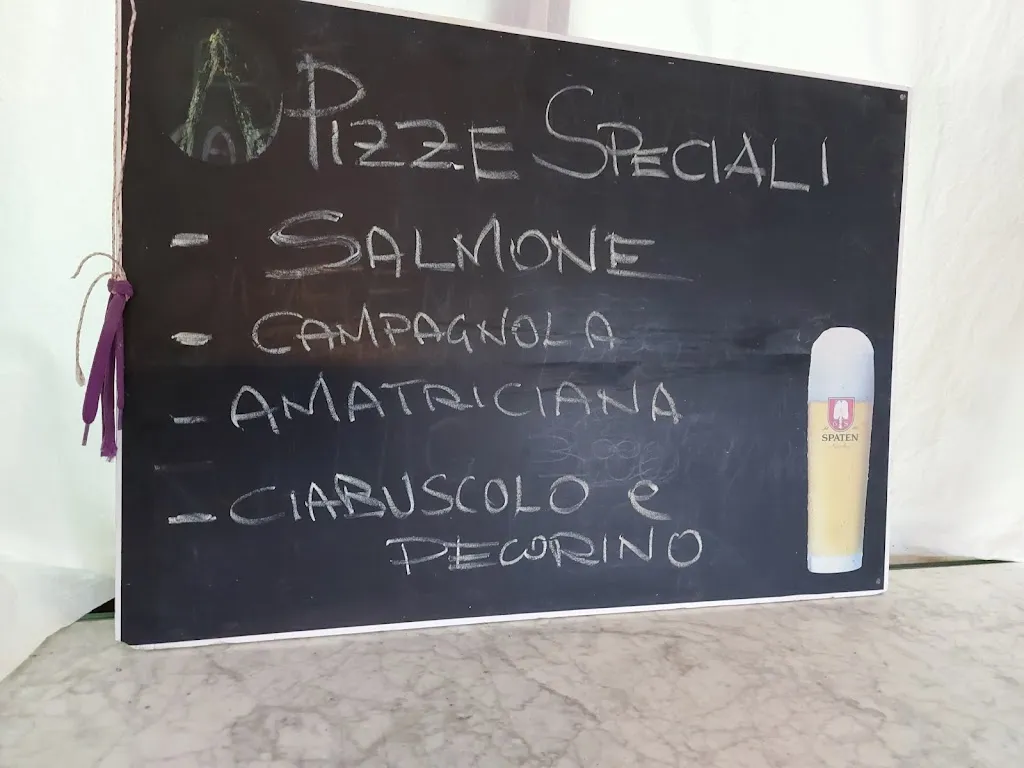 PIZZE SPECIALI
- SALMONE
- CAMPAGNOLA
- AMATRICIANA
- CIABUSCOLO e
PECORINO
SPATEN